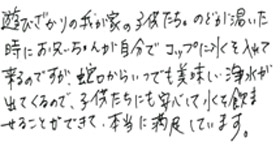 遊びざかりの我が家の子供たち。のどが渇いた
時にお兄いちゃんが自分でコップに水を入れて
来るのですが、蛇口からいつでも美味しい浄水が
出てくるので、子供たちにも安心して水を飲ま
せることができて、本当に満足しています。